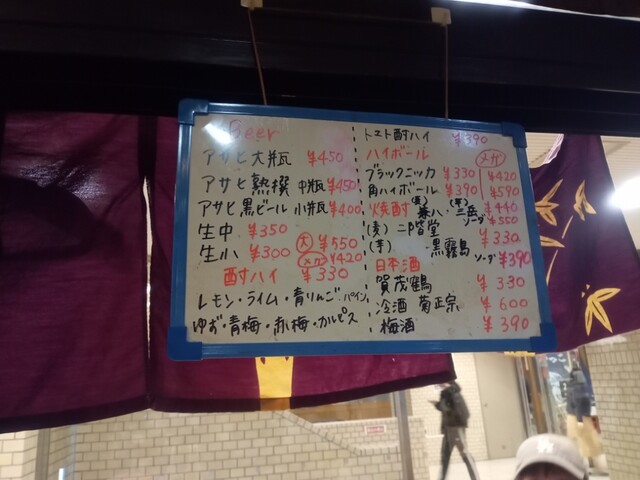 Beer
アサヒ大瓶 ¥450
アサヒ熟撰 中瓶 ¥450
アサヒ黒ビール 小瓶 ¥400
生中 ¥350 大 ¥550
生小 ¥300 メガ ¥420
酎ハイ ¥330
レモン・ライム・青りんご・パイン
ゆず・青梅・赤梅・カルピス
トマト酎ハイ ¥390
ハイボール メガ
ブラックニッカ ¥330 ¥420
角ハイボール ¥390 ¥590
焼酎 (麦)兼八・(芋)三岳 ¥440
ソーダ ¥550
(麦) 二階堂 ¥330
(芋) 黒霧島 ソーダ ¥390
日本酒
賀茂鶴 ¥330
冷酒 菊正宗 ¥600
梅酒 ¥390